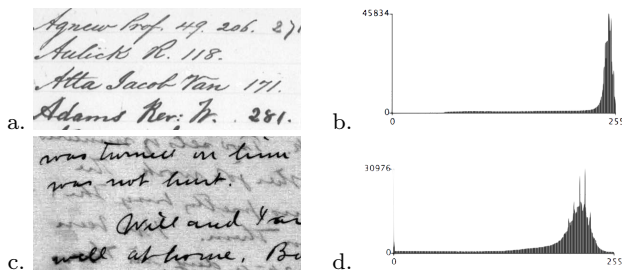 Agnew Prof. 49. 206. 271
Aulick R. 118.
Atta Jacob Van 171.
Adams Rev: W. 281.
a.
45834
0
255
b.
was turned on him
was not hurt.
Will and
well at home.
c.
30976
0
255
d.